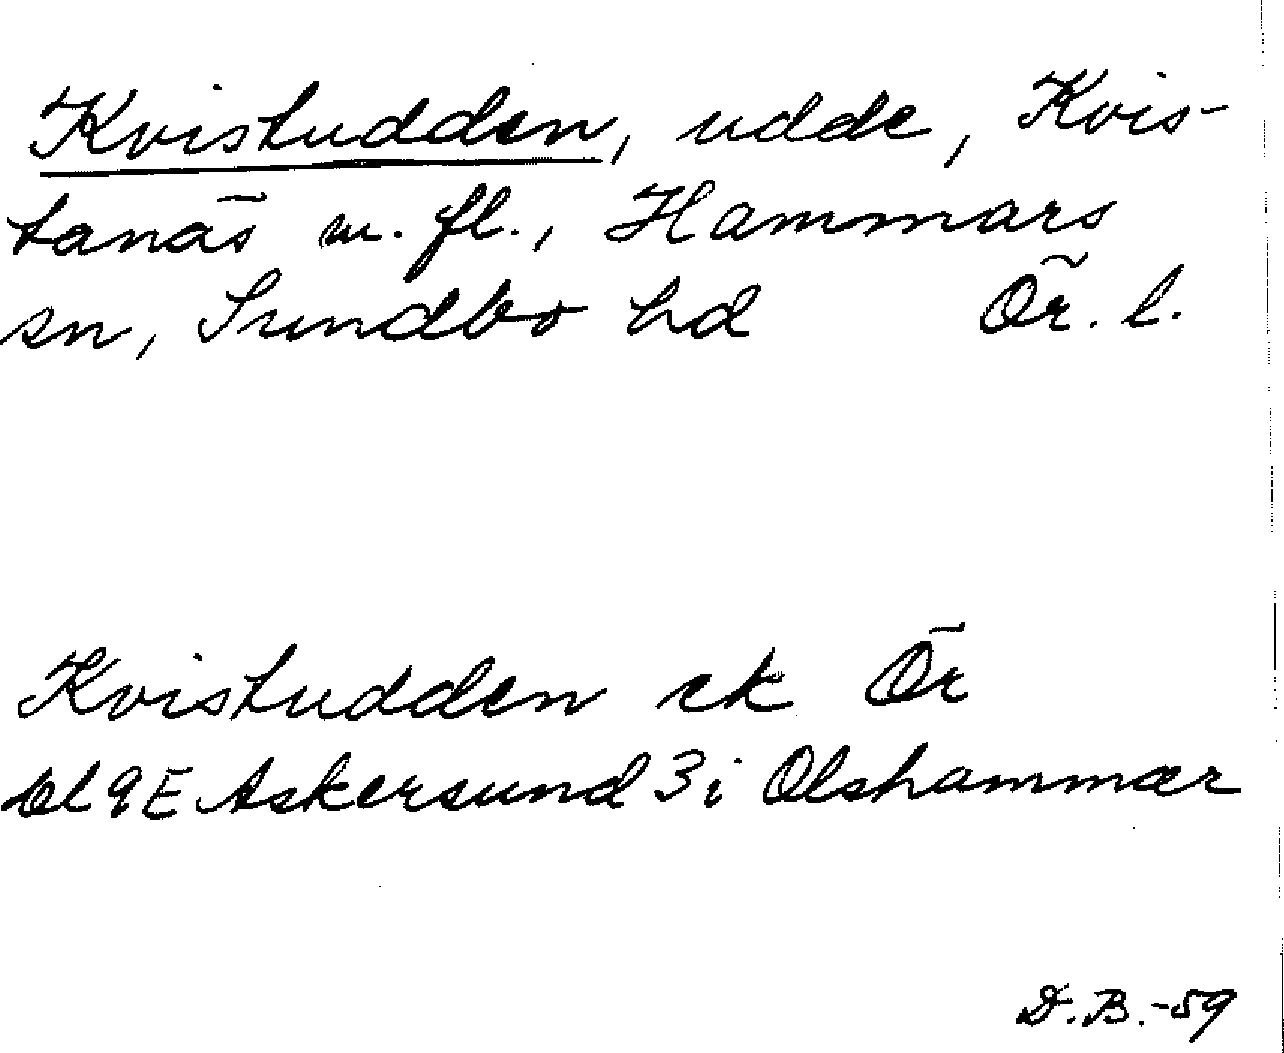 Kvistudden, udde, Kvis-
tanäs m. fl., Hammars
sn, Sundbo hd Ör. l.
Kvistudden ek Ör
bl 9E Askersund 3i Olshammar
D.B.-59